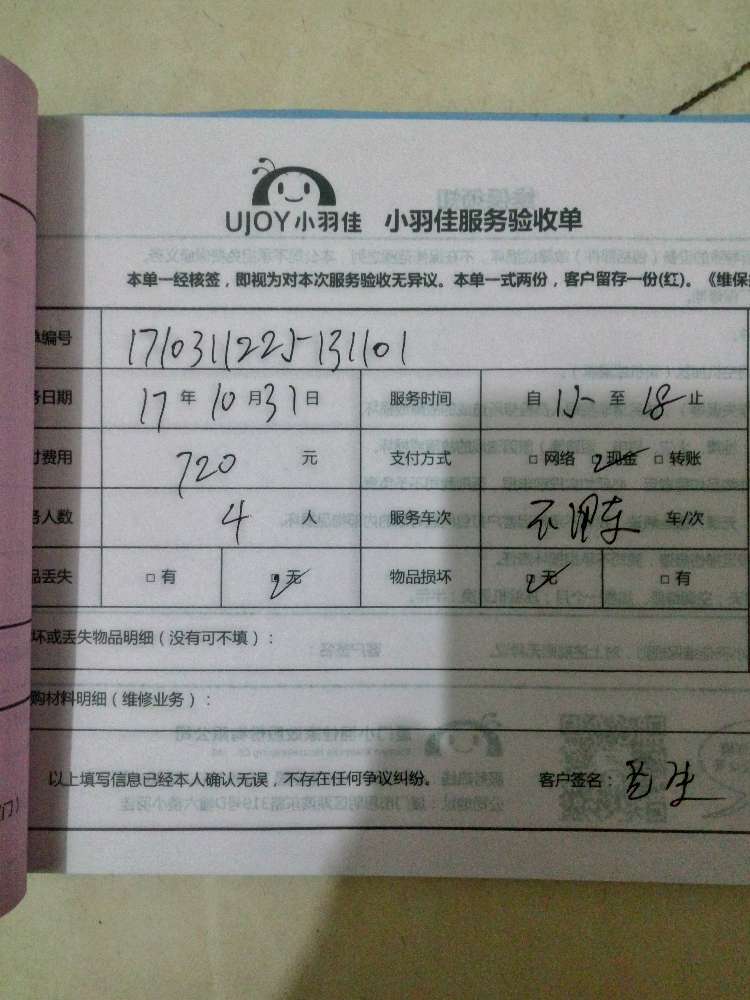 UJOY小羽佳 小羽佳服务验收单
本单一经核签，即视为对本次服务验收无异议。本单一式两份，客户留存一份(红)。《维保
单编号 1710311225131101
务日期 17年10月31日 服务时间 自15至18止
付费用 720元 支付方式 □网络 □现金 □转账
务人数 4人 服务车次 车/次
品丢失 □有 □无 物品损坏 □无 □有
坏或丢失物品明细（没有可不填）：
购材料明细（维修业务）：
以上填写信息已经本人确认无误，不存在任何争议纠纷。 客户签名：